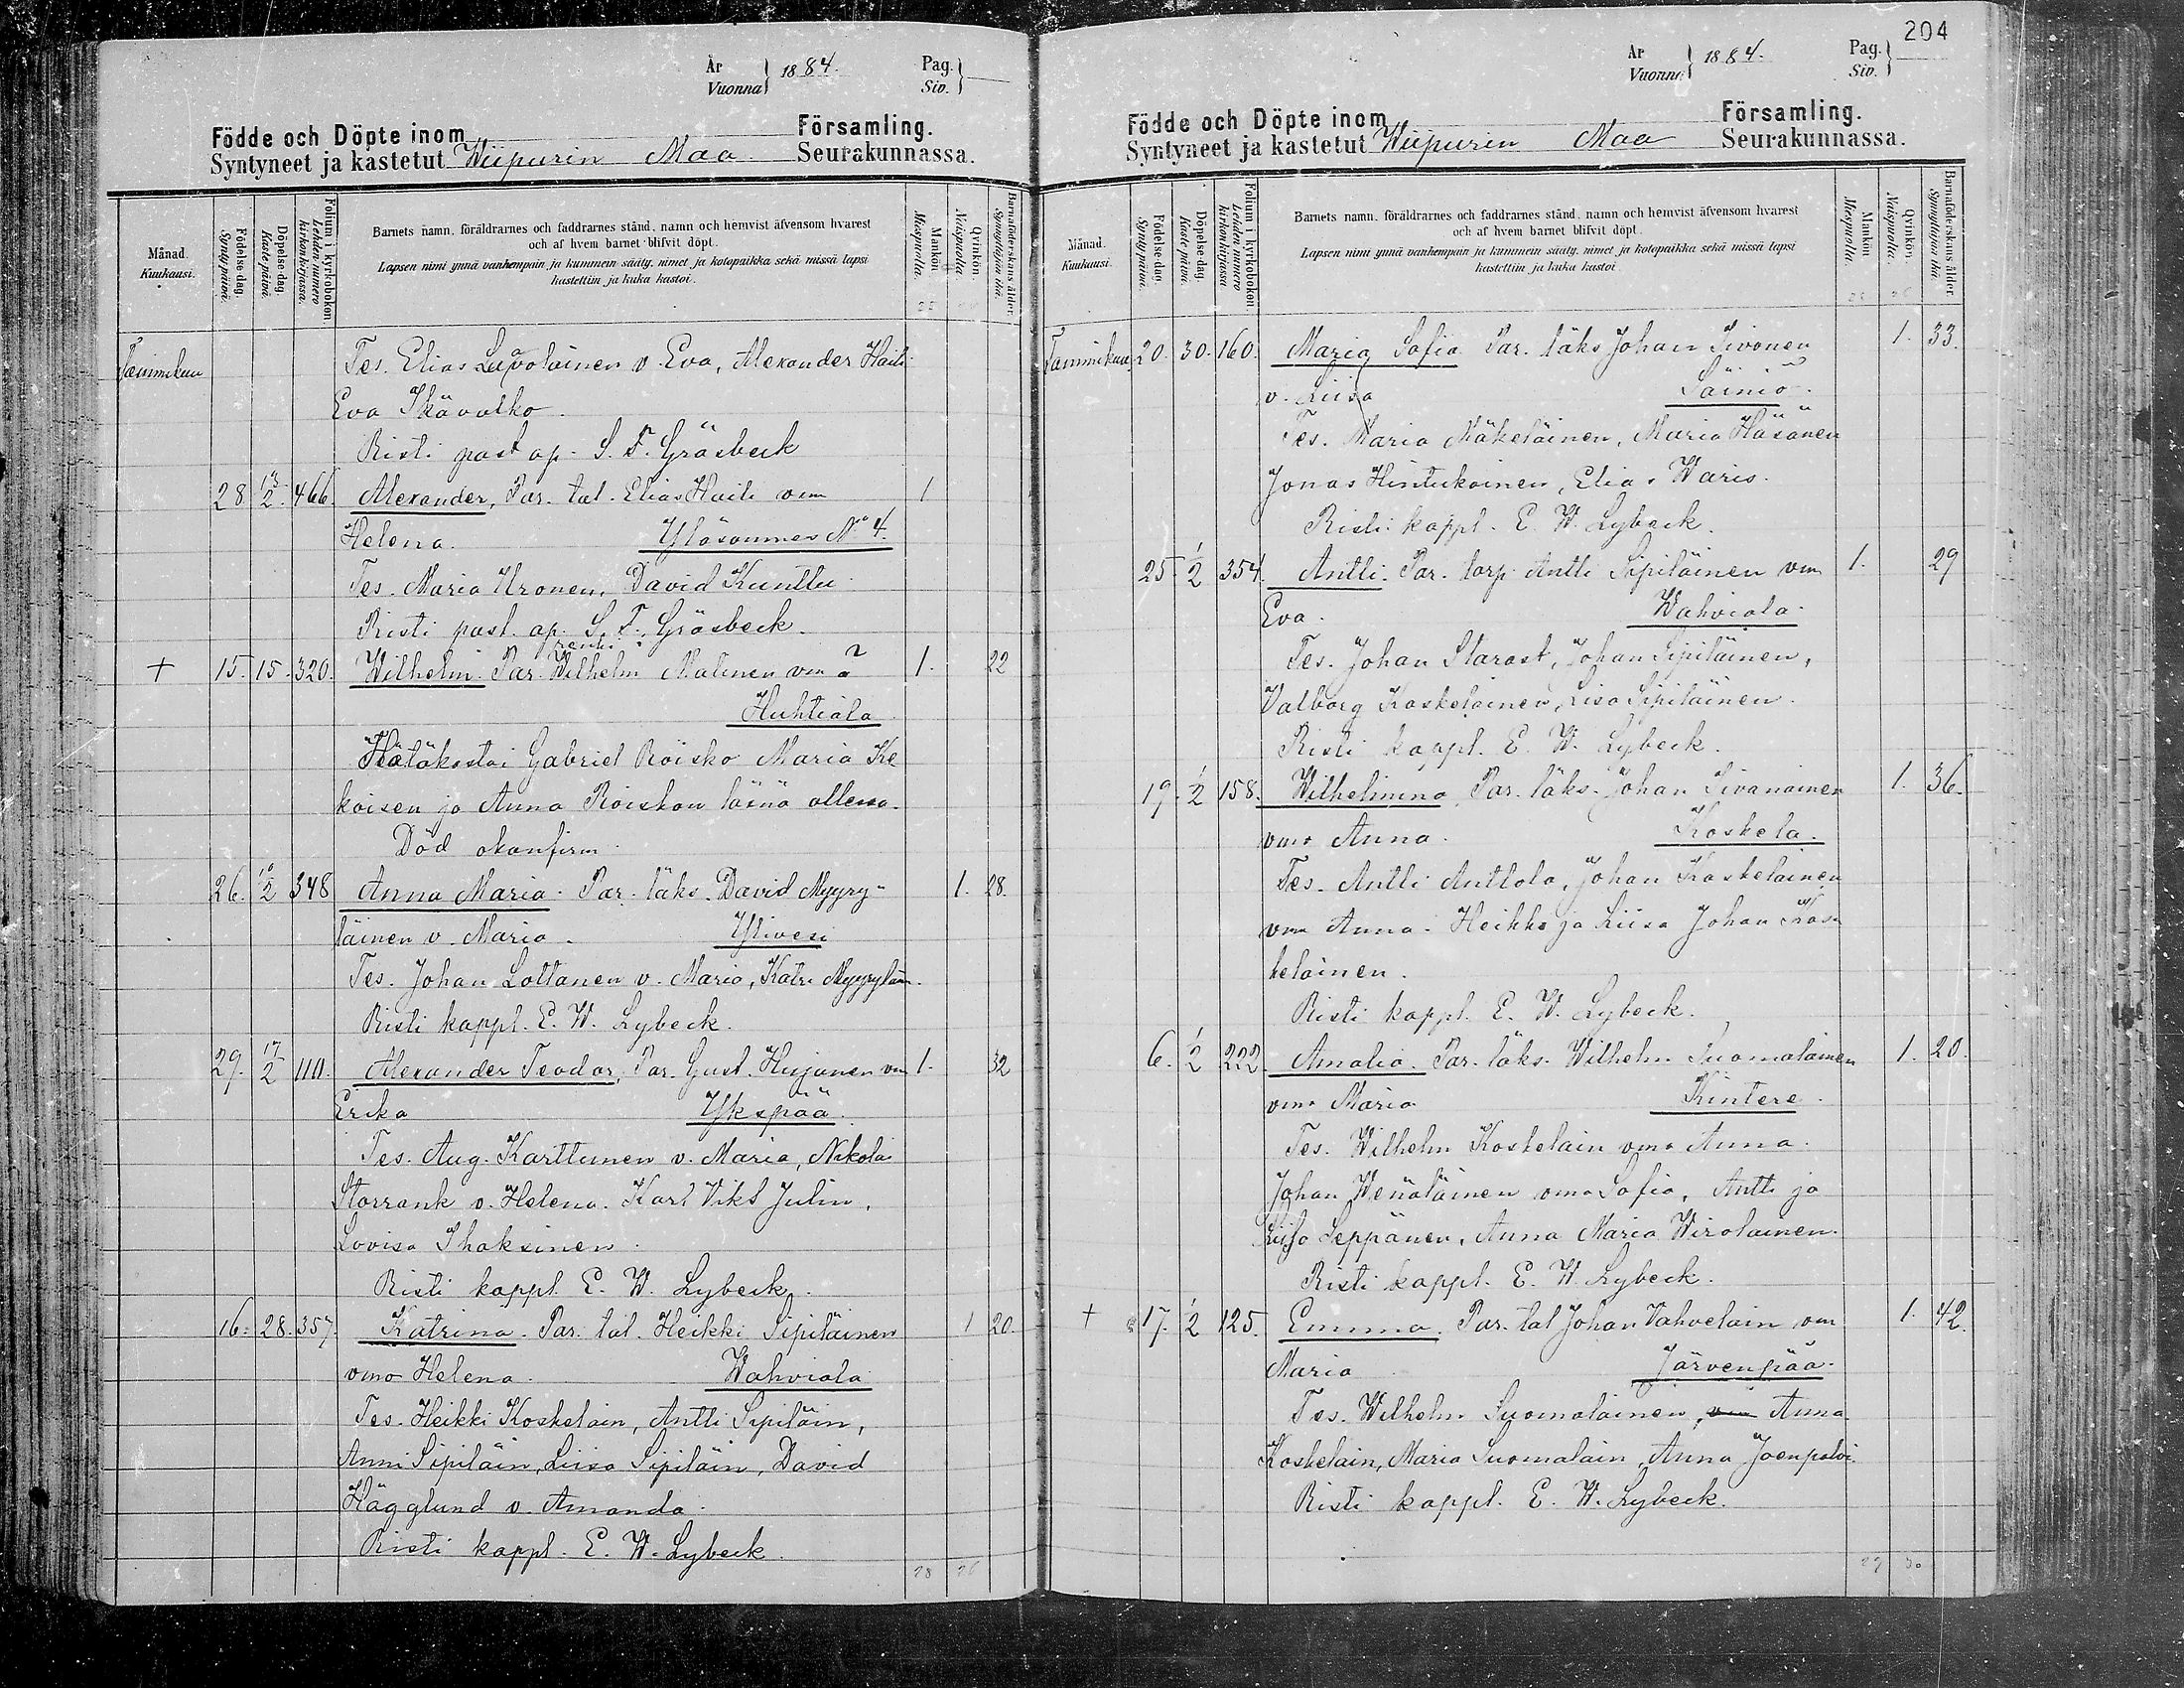 År
Vuonna} 1884.
Pag.
Siv.}
Födde och Döpte inom Församling.
Syntyneet ja kastetut Wiipurin Maa Seurakunnassa.
Månad.
Kuukausi.
Födelse dag.
Syntypäivä.
Döpelse dag.
Kaste päivä.
Folium i kyrkoboken.
Lehden numero
kirkonkirjassa.
Barnets namn, föräldrarnes och faddrarnes stånd, namn och hemvist äfvensom hvarest
och af hvem barnet blifvit döpt.
Lapsen nimi ynnä vanhempain ja kummein sääty, nimet ja kotopaikka sekä missä lapsi
kastettiin ja kuka kastoi.
Mankön
Miespuolta.
Qvinkön
Naispuolta
Barnaföderskans ålder.
Synnyttäjän ikä.
Tammikuu Tes. Elias Lavolainen v. Eva, Alexander Haili
Eva Ikävalko.
Risti past. ap. S. F. Gräsbeck
28 13/2 466. Alexander, Par. tal. Elias Haili vm 1
Helena. Yläsommee No 4.
Tes. Maria Uronen, David Kunttu.
Risti past. ap. S. F. Gräsbeck.
+ 15. 15. 320. Wilhelm. Par. Wilhelm Malinen vm ? 1. 22
Huhtiala
Hätäkastoi Gabriel Röisko Maria Ke
koisen ja Anna Röiskon läsnä ollessa.
Död okonfirm.
26. 10/2 348 Anna Maria. Par. läks. David Myyry- 1. 28.
läinen v. Maria. Ylivesi
Tes. Johan Lottanen v. Maria, Katri Myyryläin.
Risti kappl. E. W. Lybeck.
29. 17/2 110. Alexander Teodor, Par. Gust. Hujanen vm 1. 32
Erika Ykspää.
Tes. Aug. Karttunen v. Maria, Nikolai
Storrank v. Helena. Karl Vikt Julin,
Lovisa Ihaksinen.
Risti kappl. E. W. Lybeck.
16. 28. 357. Katrina. Par. tal. Heikki Sipiläinen 1 20.
vmo Helena. Wahviala
Tes. Heikki Koskelain, Antti Sipiläin,
Anni Sipiläin, Liisa Sipiläin, David
Hägglund v. Amanda.
Risti kappl. E. W. Lybeck.
28 26
204
År
Vuonna} 1884.
Pag.
Siv.}
Födde och Döpte inom Församling.
Syntyneet ja kastetut Wiipurin Maa Seurakunnassa.
Månad.
Kuukausi.
Födelse dag.
Syntypäivä.
Döpelse dag.
Kaste päivä.
Folium i kyrkoboken.
Lehden numero
kirkonkirjassa.
Barnets namn, föräldrarnes och faddrarnes stånd, namn och hemvist äfvensom hvarest
och af hvem barnet blifvit döpt.
Lapsen nimi ynnä vanhempain ja kummein sääty, nimet ja kotopaikka sekä missä lapsi
kastettiin ja kuka kastoi.
Mankön
Miespuolta.
Qvinkön.
Naispuolta.
Barnaföderskans ålder.
Synnyttäjän ikä.
Tammikuu 20. 30. 160. Maria Sofia Par. läks Johan Sivonen 1. 33.
v. Liisa Säiniö.
Tes. Maria Mäkeläinen, Maria Häsänen
Jonas Hintukainen, Elias Waris.
Risti kappl. E. W. Lybeck.
25 1/2 354. Antti. Par. torp. Antti Sipiläinen vm 1. 29
Eva. Wahviala.
Tes. Johan Starast, Johan Sipiläinen,
Valborg Koskelainen, Lisa Sipiläinen.
Risti kappl. E. W. Lybeck.
19. 1/2 158. Wilhelmina Par. läks. Johan Sivanainen 1. 36.
vmo Anna. Koskela.
Tes. Antti Anttola, Johan Koskelainen
vm Anna. Heikki ja Liisa Johan Kos-
kelainen.
Risti kappl. E. W. Lybeck.
6. 1/2 222. Amalia. Par. läks. Wilhelm Suomalainen 1. 20.
vmo Maria Kintere.
Tes. Wilhelm Koskelain vmo Anna.
Johan Wenäläinen vmo Sofia, Antti ja
Liisa Seppänen, Anna Maria Wirolainen.
Risti kappl. E. W. Lybeck.
+ 17. 1/2 125. Emma. Par. tal Johan Vahvelain vm 1. 42.
Maria Järvenpää.
Tes. Wilhelm Suomalainen, vm Anna
Koskelain, Maria Suomalain, Anna Joenpolvi
Risti kappl. E. W. Lybeck.
29 30